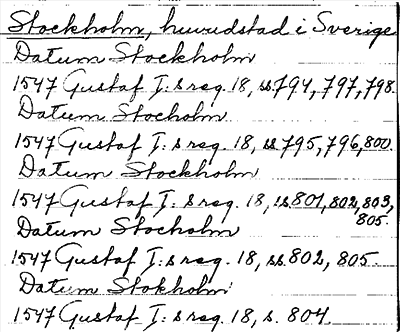 Stockholm, huvudstad i Sverige
Datum Stockholm
1547 Gustaf I:s reg. 18, ss 794, 797, 798.
Datum Stocholm
1547 Gustaf I:s reg. 18, ss 795, 796, 800.
Datum Stockholm
1547 Gustaf I:s reg. 18, ss 801, 802, 803,
805.
Datum Stocholm
1547 Gustaf I:s reg. 18, ss. 802, 805.
Datum Stokholm
1547 Gustaf I:s reg. 18, s. 804.